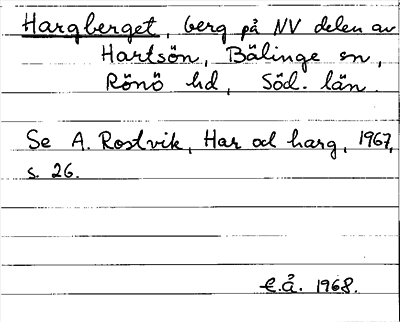 Hargberget, berg på NV delen av
Hartsön, Bälinge sn,
Rönö hd, Söd. län.
Se A. Rostvik, Har och harg, 1967,
s. 26.
E.Å. 1968.